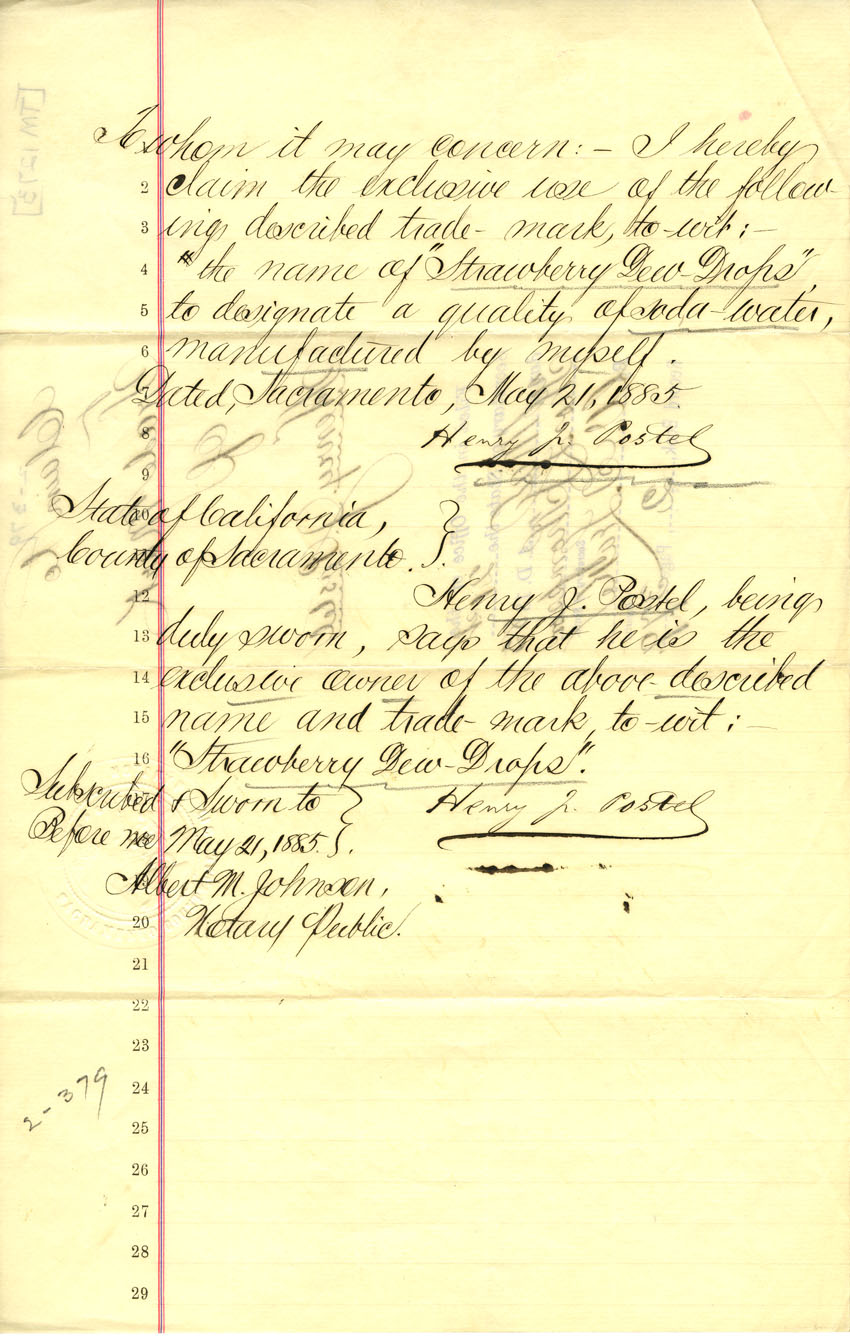 To whom it may concern:- I hereby
2 claim the exclusive use of the follow-
3 ing described trade-mark, to-wit:-
4 "the name of "Strawberry Dew Drops",
5 to designate a quality of soda-water,
6 manufactured by myself.
7 Dated, Sacramento, May 21, 1885.
8 Henry J. Postel
9
10 State of California, }
11 County of Sacramento. }.
12 Henry J. Postel, being
13 duly sworn, says that he is the
14 exclusive owner of the above-described
15 name and trade-mark, to-wit:-
16 "Strawberry Dew-Drops".
17 Subscribed & Sworn to } Henry J. Postel
18 Before me May 21, 1885. }.
Albert M. Johnson,
20 Notary Public.
21
22
23
2-379
24
25
26
27
28
29
[TM 1213]